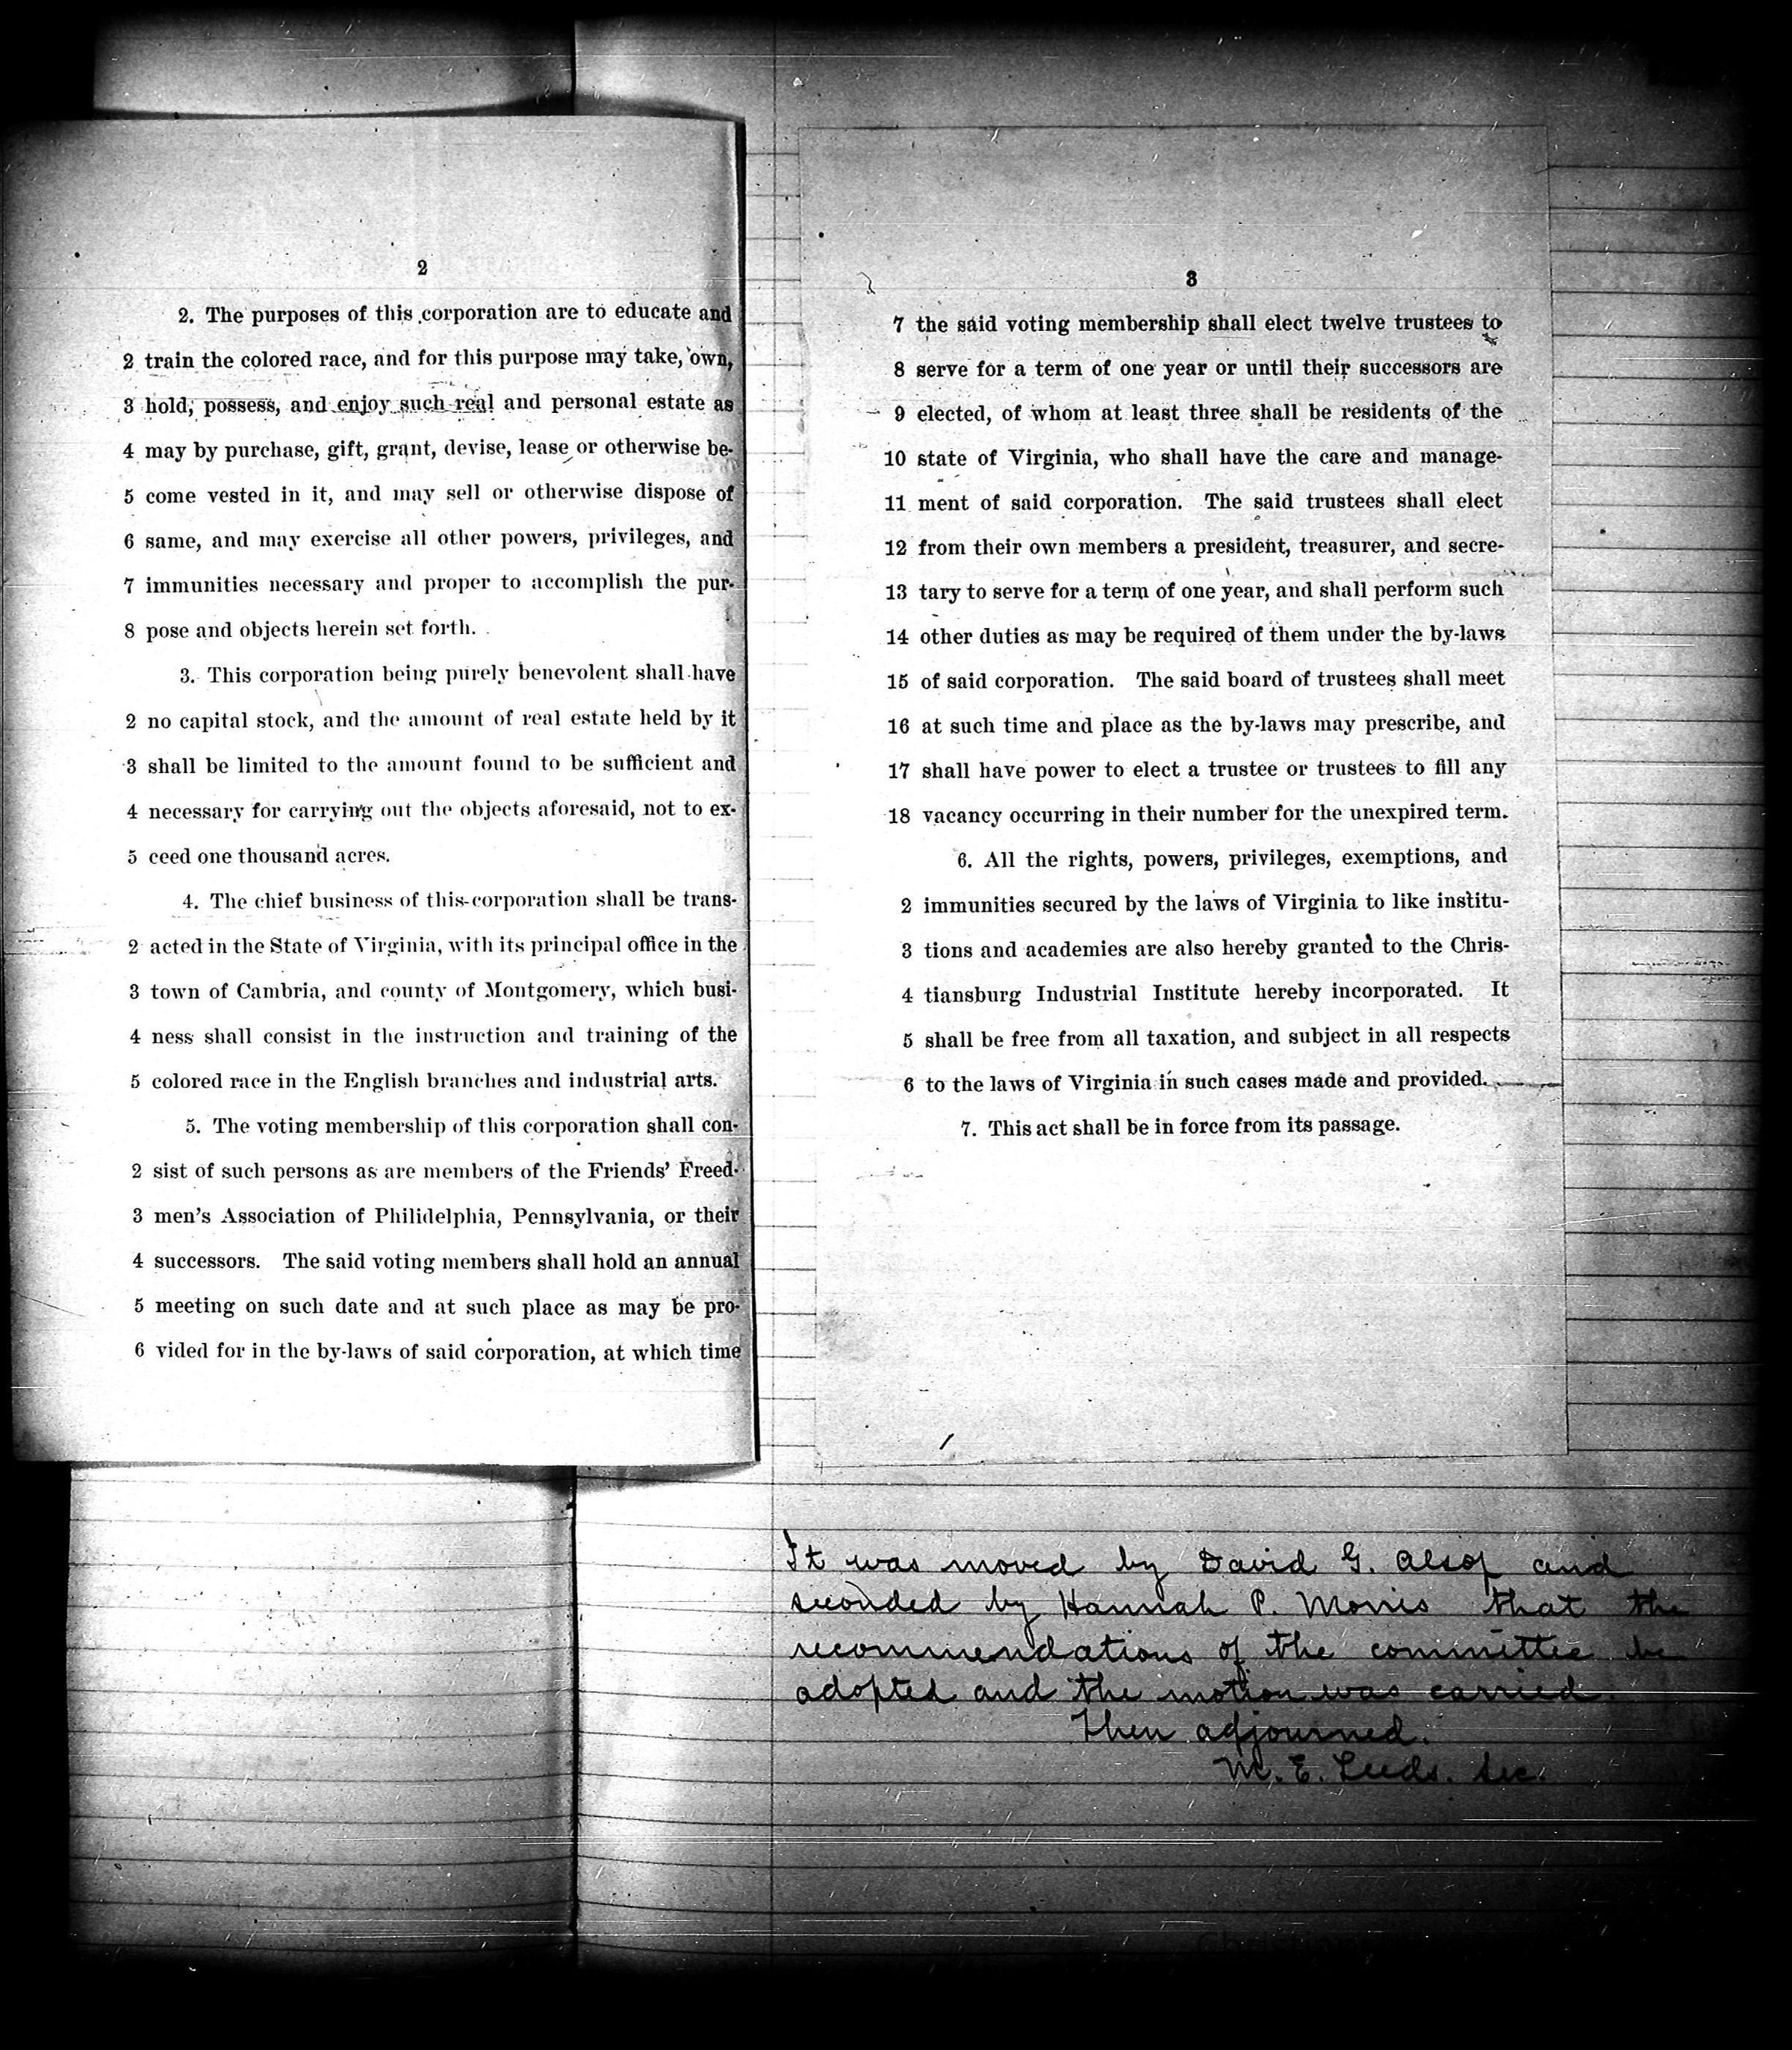 2
2. The purposes of this corporation are to educate and
2 train the colored race, and for this purpose may take, own,
3 hold, possess, and enjoy such real and personal estate as
4 may by purchase, gift, grant, devise, lease or otherwise be-
5 come vested in it, and may sell or otherwise dispose of
6 same, and may exercise all other powers, privileges, and
7 immunities necessary and proper to accomplish the pur-
8 pose and objects herein set forth.
3. This corporation being purely benevolent shall have
2 no capital stock, and the amount of real estate held by it
3 shall be limited to the amount found to be sufficient and
4 necessary for carrying out the objects aforesaid, not to ex-
5 ceed one thousand acres.
4. The chief business of this corporation shall be trans-
2 acted in the State of Virginia, with its principal office in the
3 town of Cambria, and county of Montgomery, which busi-
4 ness shall consist in the instruction and training of the
5 colored race in the English branches and industrial arts.
5. The voting membership of this corporation shall con-
2 sist of such persons as are members of the Friends' Freed-
3 men's Association of Philidelphia, Pennsylvania, or their
4 successors. The said voting members shall hold an annual
5 meeting on such date and at such place as may be pro-
6 vided for in the by-laws of said corporation, at which time
3
7 the said voting membership shall elect twelve trustees to
8 serve for a term of one year or until their successors are
9 elected, of whom at least three shall be residents of the
10 state of Virginia, who shall have the care and manage-
11 ment of said corporation. The said trustees shall elect
12 from their own members a president, treasurer, and secre-
13 tary to serve for a term of one year, and shall perform such
14 other duties as may be required of them under the by-laws
15 of said corporation. The said board of trustees shall meet
16 at such time and place as the by-laws may prescribe, and
17 shall have power to elect a trustee or trustees to fill any
18 vacancy occurring in their number for the unexpired term.
6. All the rights, powers, privileges, exemptions, and
2 immunities secured by the laws of Virginia to like institu-
3 tions and academies are also hereby granted to the Chris-
4 tiansburg Industrial Institute hereby incorporated. It
5 shall be free from all taxation, and subject in all respects
6 to the laws of Virginia in such cases made and provided.
7. This act shall be in force from its passage.
It was moved by David G. Alsop and
seconded by Hannah P. Morris that the
recommendations of the committee be
adopted and the motion was carried.
Then adjourned.
M. E. Leeds. Sec.